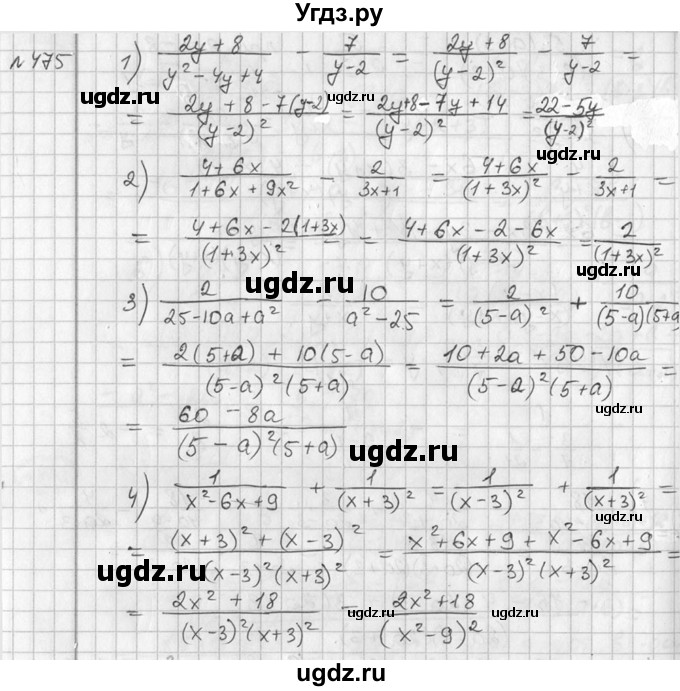 Угдз.ру
№475 1) (2y + 8)/(y² - 4y + 4) - 7/(y-2) = (2y + 8)/(y-2)² - 7/(y-2) =
= (2y + 8 - 7(y-2))/(y-2)² = (2y+8-7y+14)/(y-2)² = (22-5y)/(y-2)²
ugdz.ru ugdz.ru ugdz.ru
2) (4+6x)/(1+6x+9x²) - 2/(3x+1) = (4+6x)/(1+3x)² - 2/(3x+1) =
= (4+6x-2(1+3x))/(1+3x)² = (4+6x-2-6x)/(1+3x)² = 2/(1+3x)²
ugdz.ru ugdz.ru
3) 2/(25-10a+a²) - 10/(a²-25) = 2/(5-a)² + 10/(5-a)(5+a
= (2(5+a) + 10(5-a))/(5-a)²(5+a) = (10+2a+50-10a)/(5-a)²(5+a) =
ugdz.ru ugdz.ru
= (60-8a)/(5-a)²(5+a)
ugdz.ru
4) 1/(x²-6x+9) + 1/(x+3)² = 1/(x-3)² + 1/(x+3)² =
ugdz.ru ugdz.ru
= ((x+3)² + (x-3)²)/(x-3)²(x+3)² = (x²+6x+9+x²-6x+9)/(x-3)²(x+3)² =
ugdz.ru
= (2x²+18)/(x-3)²(x+3)² = (2x²+18)/(x²-9)²
ugdz.ru ugdz.ru
ugdz.ru